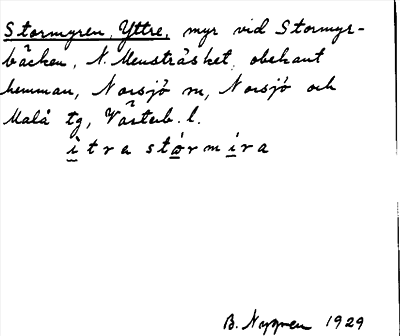 Stormyren, Yttre, myr vid Stormyr-
bäcken, N. Mensträsket, obekant
hemman, Norsjö sn, Norsjö och
Malå tg, Västerb. l.
ìtra stórmíra
B. Nygren 1929